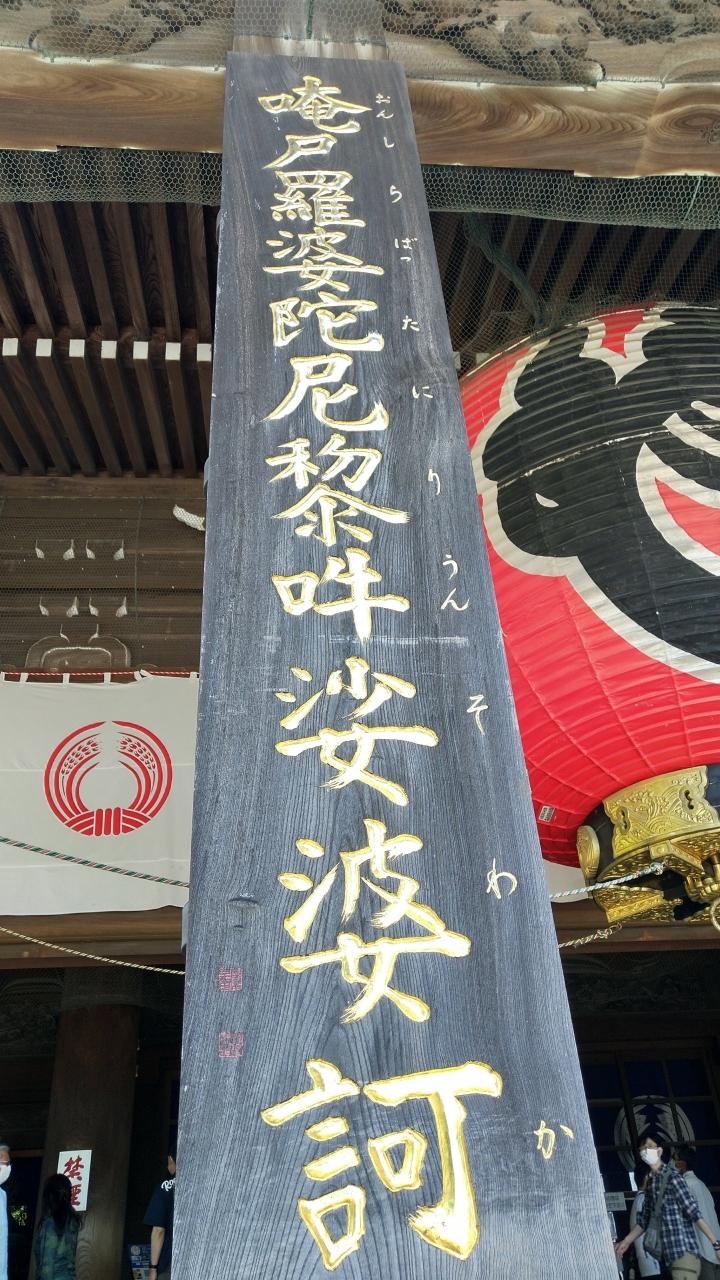 唵尸羅婆陀尼黎吽娑婆訶
おんしらばったにりうんそわか
禁煙